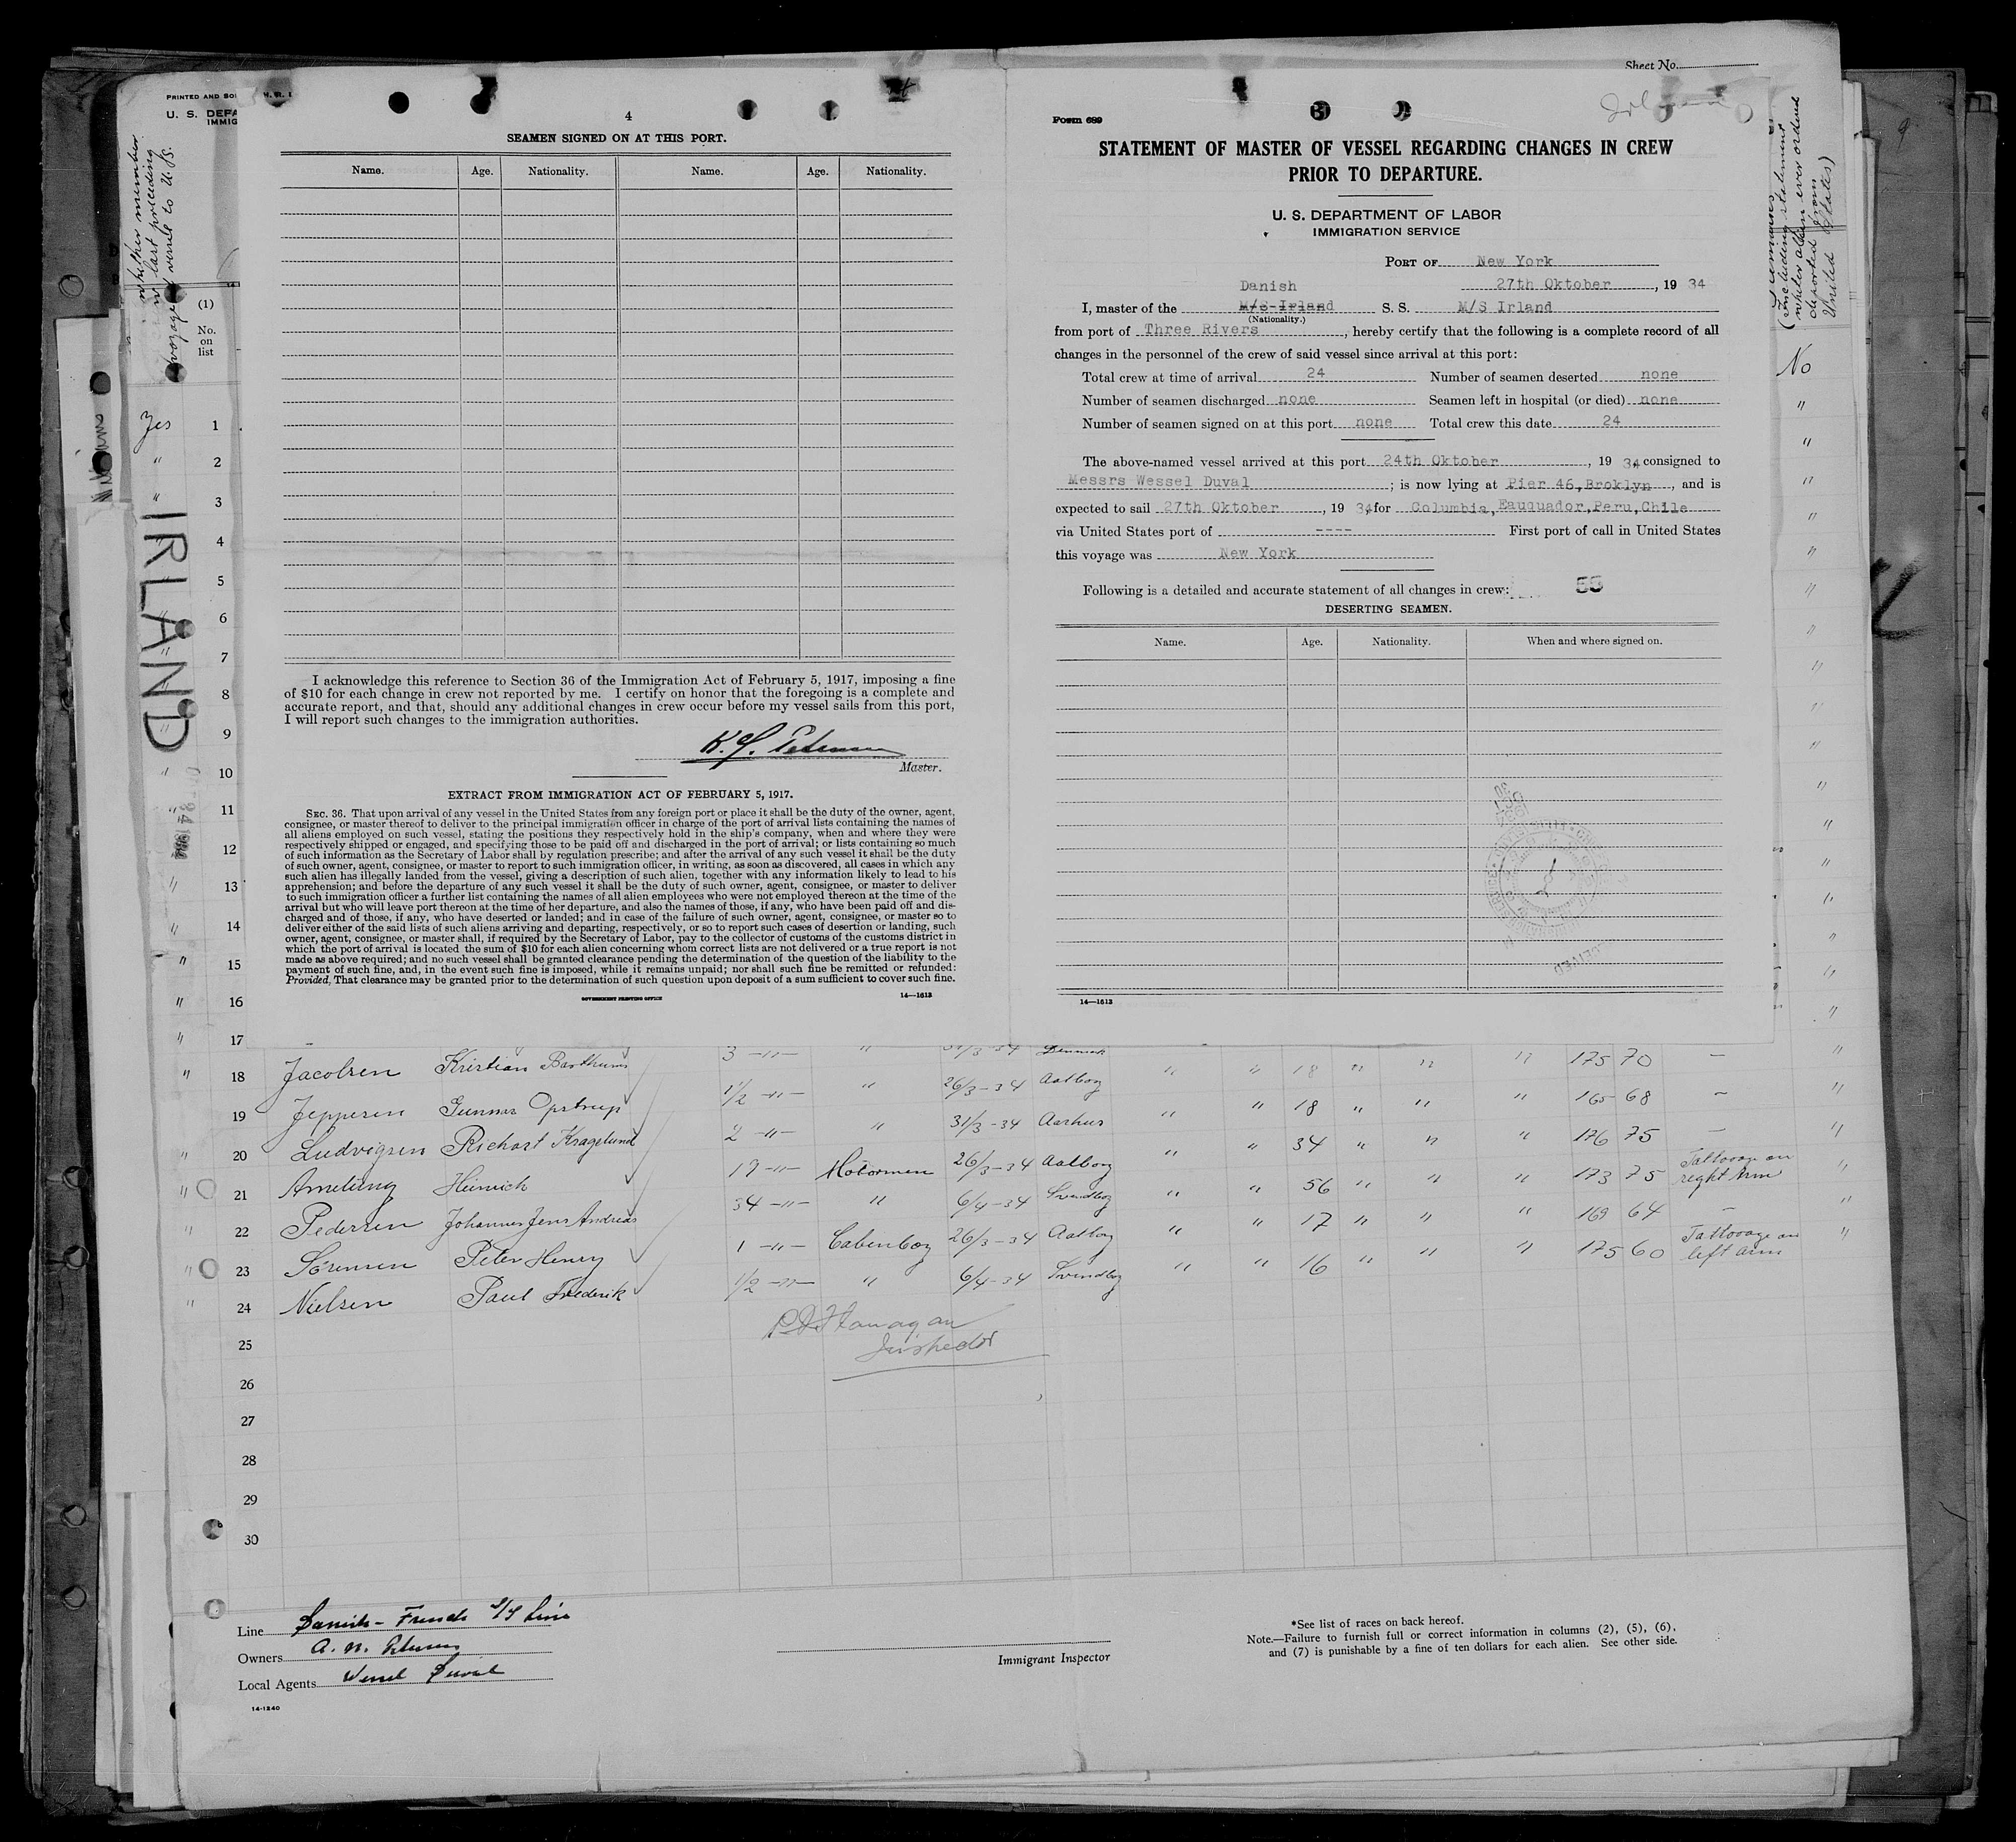 Sheet No.
PRINTED AND SOL
H. R. I.
U. S. DEPA
IMMIG
whether member
last preceding
voyage vessel to U.S.
(1)
No.
on
list
IRLAND
4
SEAMEN SIGNED ON AT THIS PORT.
Name. Age. Nationality. Name. Age. Nationality.
I acknowledge this reference to Section 36 of the Immigration Act of February 5, 1917, imposing a fine
of $10 for each change in crew not reported by me. I certify on honor that the foregoing is a complete and
accurate report, and that, should any additional changes in crew occur before my vessel sails from this port,
I will report such changes to the immigration authorities.
Master.
EXTRACT FROM IMMIGRATION ACT OF FEBRUARY 5, 1917.
SEC. 36. That upon arrival of any vessel in the United States from any foreign port or place it shall be the duty of the owner, agent,
consignee, or master thereof to deliver to the principal immigration officer in charge of the port of arrival lists containing the names of
all aliens employed on such vessel, stating the positions they respectively hold in the ship's company, when and where they were
respectively shipped or engaged, and specifying those to be paid off and discharged in the port of arrival; or lists containing so much
of such information as the Secretary of Labor shall by regulation prescribe; and after the arrival of any such vessel it shall be the duty
of such owner, agent, consignee, or master to report to such immigration officer, in writing, as soon as discovered, all cases in which any
such alien has illegally landed from the vessel, giving a description of such alien, together with any information likely to lead to his
apprehension; and before the departure of any such vessel it shall be the duty of such owner, agent, consignee, or master to deliver
to such immigration officer a further list containing the names of all alien employees who were not employed thereon at the time of the
arrival but who will leave port thereon at the time of her departure, and also the names of those, if any, who have been paid off and dis-
charged and of those, if any, who have deserted or landed; and in case of the failure of such owner, agent, consignee, or master so to
deliver either of the said lists of such aliens arriving and departing, respectively, or so to report such cases of desertion or landing, such
owner, agent, consignee, or master shall, if required by the Secretary of Labor, pay to the collector of customs of the customs district in
which the port of arrival is located the sum of $10 for each alien concerning whom correct lists are not delivered or a true report is not
made as above required; and no such vessel shall be granted clearance pending the determination of the question of the liability to the
payment of such fine, and, in the event such fine is imposed, while it remains unpaid; nor shall such fine be remitted or refunded:
Provided, That clearance may be granted prior to the determination of such question upon deposit of a sum sufficient to cover such fine.
GOVERNMENT PRINTING OFFICE 14—1613
Form 689
STATEMENT OF MASTER OF VESSEL REGARDING CHANGES IN CREW
PRIOR TO DEPARTURE.
U. S. DEPARTMENT OF LABOR
IMMIGRATION SERVICE
PORT OF New York
27th Oktober, 19 34
Danish
I, master of the M/S Irland S. S. M/S Irland
(Nationality.)
from port of Three Rivers, hereby certify that the following is a complete record of all
changes in the personnel of the crew of said vessel since arrival at this port:
Total crew at time of arrival 24 Number of seamen deserted none
Number of seamen discharged none Seamen left in hospital (or died) none
Number of seamen signed on at this port none Total crew this date 24
The above-named vessel arrived at this port 24th Oktober, 19 34 consigned to
Messrs Wessel Duval; is now lying at Pier 46, Broklyn, and is
expected to sail 27th Oktober, 19 34, for Columbia, Eauquador, Peru, Chile
via United States port of ---- First port of call in United States
this voyage was New York
Following is a detailed and accurate statement of all changes in crew: 55
DESERTING SEAMEN.
Name. Age. Nationality. When and where signed on.
14—1613
(including statement
whether alien ever ordered
deported from
United States)
No
Yes 1
" 2
" 3
4
5
6
7
8
9
10
11
12
13
14
15
16
17
3 -"- " 31/3-34 Denmark
18 Jacobsen Kristian Barthums 1/2 -"- " 26/3-34 Aalborg " " 18 " " " 175 70 — "
19 Jeppesen Gunnar Opstrup 2 -"- " 31/3-34 Aarhus " " 18 " " " 165 68 — "
20 Ludvigsen Richart Kragelund 17 -"- Motormen 26/3-34 Aalborg " " 34 " " " 176 75 — "
21 Amelung Heinrich 34 -"- " 6/4-34 Svendborg " " 56 " " " 173 75 Tattooage on right Arm "
22 Pedersen Johannes Jens Andreas 1 -"- Cabinboy 26/3-34 Aalborg " " 17 " " " 169 64 — "
23 Sörensen Peter Henry 1/2 -"- " 6/4-34 Svendborg " " 16 " " " 175 60 Tattooage on left arm "
24 Nielsen Paul Frederik
25 Flanagan
Inspector
26
27
28
29
30
Line Danish-French S/S Line
Owners A. N. Petersen
Local Agents Wessel Duval
14-1240
Immigrant Inspector
*See list of races on back hereof.
Note.—Failure to furnish full or correct information in columns (2), (5), (6),
and (7) is punishable by a fine of ten dollars for each alien. See other side.